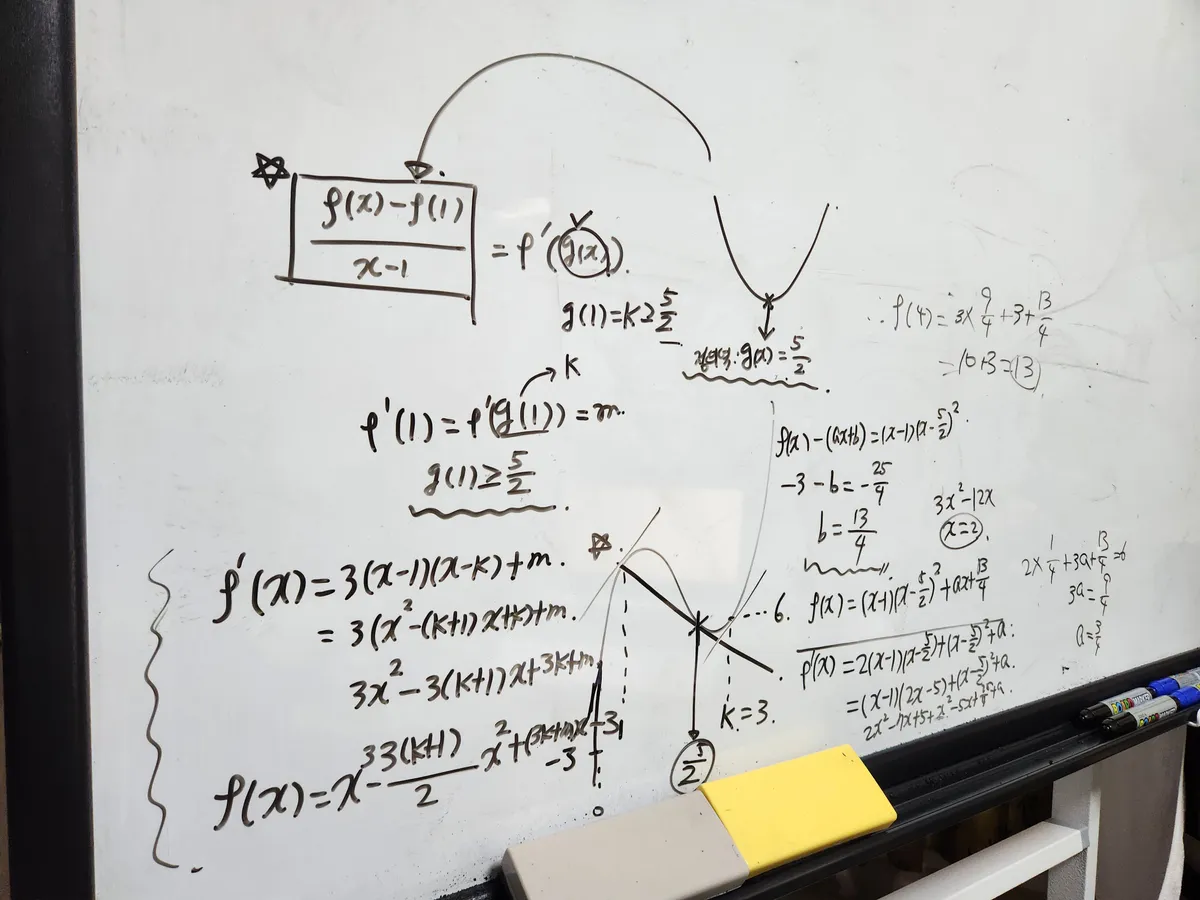 f(x)-f(1) / x-1 = f'(g(x)).
g(1)=k≥5/2
g(x)=5/2
∴ f(4)=3×9/4+3+13/4
=10+3=13
k
f'(1)=f'(g(1))=m.
g(1)≥5/2
f(x)-(ax+b)=(x-1)(x-5/2)².
-3-b=-25/4
b=13/4
3x²-12x
x=2.
f'(x)=3(x-1)(x-k)+m.
=3(x²-(k+1)x+k)+m.
3x²-3(k+1)x+3k+m
f(x)=x³-3(k+1)/2 x²+(3k+m)x-3
1
-3
0
5/2
k=3.
6.
f(x)=(x-1)(x-5/2)²+ax+13/4
f'(x)=2(x-1)(x-5/2)+(x-5/2)²+a.
=(x-1)(2x-5)+(x-5/2)²+a.
2x²-7x+5+x²-5x+25/4+a.
2×1/4+3a+13/4=6
3a=9/4
a=3/4